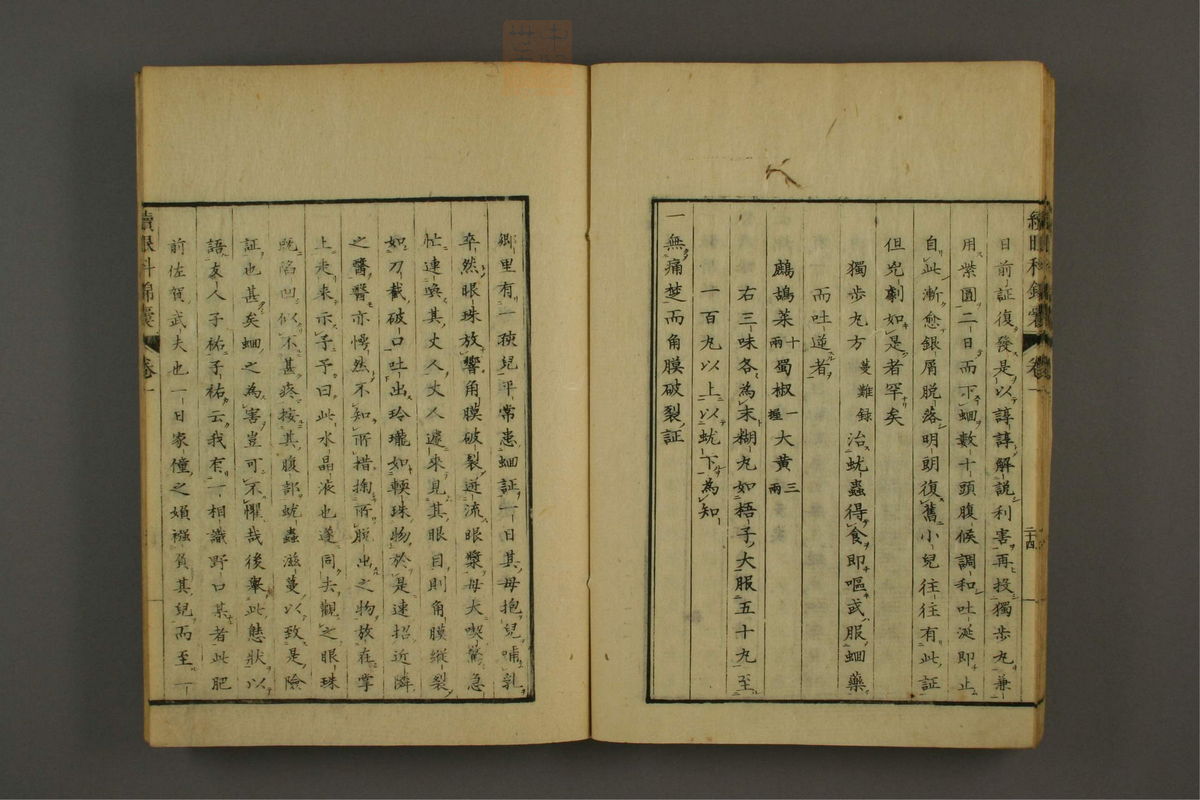 續眼科錦囊 卷一 二十四
日前証復發是以諄諄解説利害再投獨歩丸兼
用紫圓二日而下蛔數十頭腹候調和吐涎即止
自此漸愈銀屑脱落明朗復舊小兒往往有此証
但兇劇如是者罕矣
獨歩丸方 蔓難録 治蚘蟲得食即嘔或服蛔藥
而吐逆者
鷓鴣菜十兩 蜀椒一握 大黄三兩
右三味各為末糊丸如梧子大服五十丸至
一百丸以上以蚘下為知
一無痛楚而角膜破裂証
鄉里有一孩兒平常患蛔証一日其母抱兒哺乳
卒然眼珠放響角膜破裂迸流眼漿母大喫驚急
忙連喚其丈人丈人遽来見其眼目則角膜縱裂
如刀截破口吐出玲瓏如輭珠物於是速招近隣
之醫醫亦愕然不知所措掬所脱出之物放在掌
上走来示予予曰此水晶液也遂同去觀之眼珠
既陷凹似不甚疼按其腹部蚘蟲滋蔓以致是險
証也甚矣蛔之為害豈可不懼哉後舉此態狀以
語友人子祐子祐云我有一相識野口某者此肥
前佐賀武夫也一日家僮之媍襁負其兒而至一
續眼科錦囊 卷一